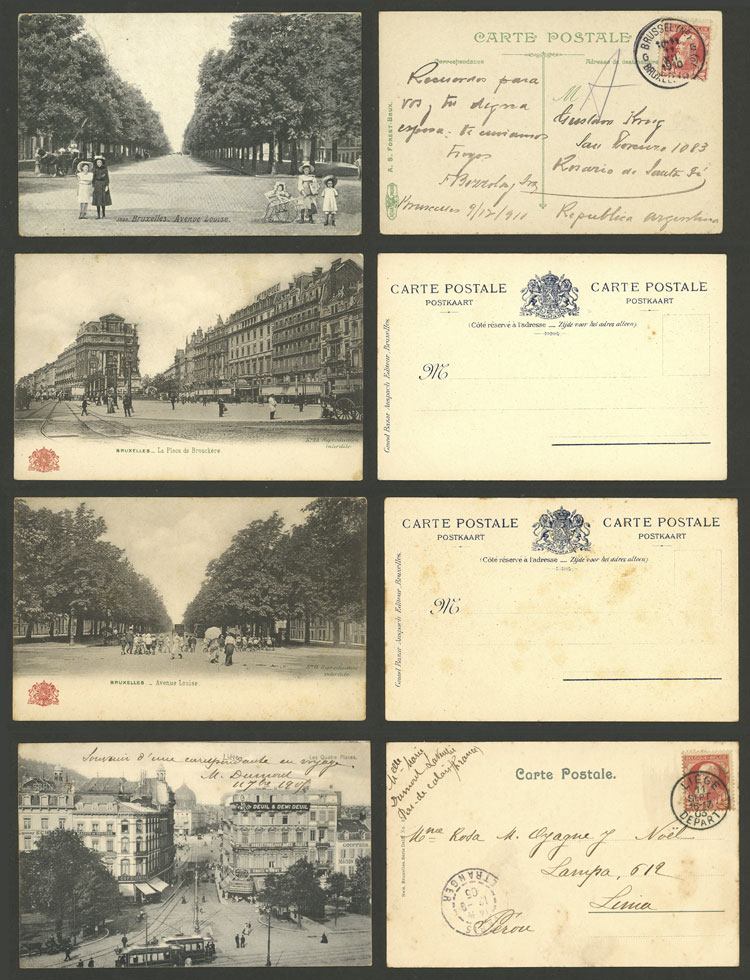 Bruxelles. Avenue Louise.
CARTE POSTALE
Correspondance
Recuerdos para
vos, tu digna
esposa: te enviamos
Bruxelles 9/12/910
A. S. FOREST-BRUX.
BRUSSEL
1910
BRUXELLES
M
A
Gustavo
San Lorenzo 1083
Rosario de Santa Fé
Republica Argentina
BRUXELLES _ La Place de Brouckère
Reproduction
interdite
CARTE POSTALE CARTE POSTALE
POSTKAART POSTKAART
(Côté réservé à l'adresse _ Zijde voor het adres alleen)
M
Grand Bazar Anspach Editeur, Bruxelles.
BRUXELLES _ Avenue Louise
Reproduction
interdite
CARTE POSTALE CARTE POSTALE
POSTKAART POSTKAART
(Côté réservé à l'adresse _ Zijde voor het adres alleen)
M
Grand Bazar Anspach Editeur, Bruxelles.
Liége Les Quatre Places.
Souvenir d'une correspondante en voyage
M. Dumont
DEUIL & DEMI DEUIL
COIFFEUR
Carte Postale.
LIÉGE
11
SEPT
05
DÉPART
Dumont
Pas-de-Calais (France)
Mme Rosa M. Oyague y Noël
Lampa, 612
Lima
Pérou
ETRANGER